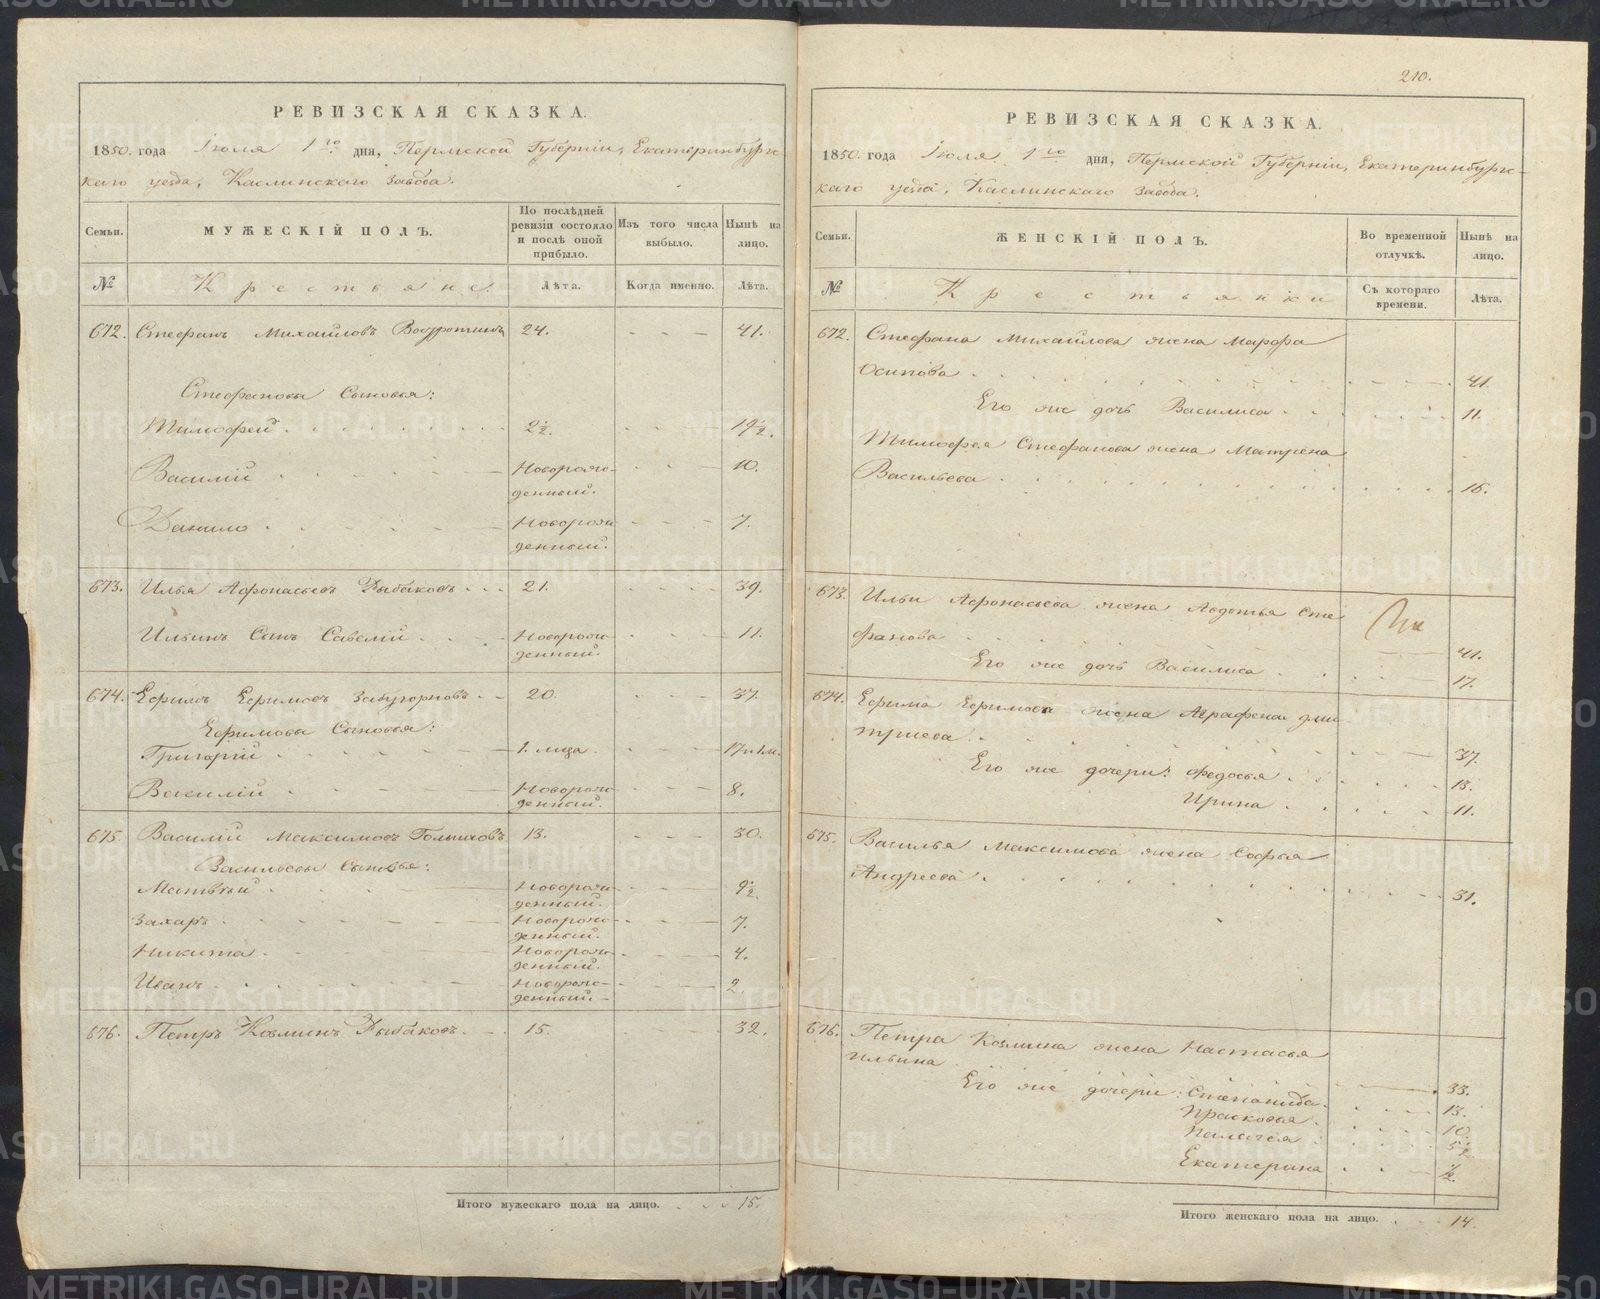 210.
РЕВИЗСКАЯ СКАЗКА.
1850. года Іюля 1го дня, Пермской Губерніи, Екатеринбургс-
каго уезда, Каслинскаго завода.
Семьи.
МУЖЕСКІЙ ПОЛЪ.
По послѣдней ревизіи состояло и послѣ оной прибыло.
Изъ того числа выбыло.
Нынѣ на лицо.
№
Крестьяне
Лѣта.
Когда именно.
Лѣта.
672. Стефанъ Михайловъ 24. 41.
Стефановы Сыновья:
Тимофей 2½. 19½.
Василій Новорож- 10.
денный.
Данило Новорож- 7.
денный.
673. Илья Афонасьевъ Рыбаковъ 21. 39.
Ильинъ Сынъ Савелій Новорож- 11.
денный.
674. Ефимъ Ефимовъ Забугорновъ 20. 37.
Ефимовы Сыновья:
Григорій 1. мца. 17 и 1 м.
Василій Новорож- 8.
денный.
675. Василій Максимовъ 13. 30.
Васильевы Сыновья:
Матвѣй Новорож- 9½.
денный.
Захаръ Новорож- 7.
денный.
Никита Новорож- 4.
денный.
Иванъ Новорож- 2.
денный.
676. Петръ Козминъ Рыбаковъ 15. 32.
Итого мужескаго пола на лицо. 15.
РЕВИЗСКАЯ СКАЗКА.
1850. года Іюля 1го дня, Пермской Губерніи, Екатеринбургс-
каго уезда, Каслинскаго завода.
Семьи.
ЖЕНСКІЙ ПОЛЪ.
Во временной отлучкѣ.
Нынѣ на лицо.
№
Крестьянки
Съ котораго времени.
Лѣта.
672. Стефана Михайлова жена Марфа
Осипова 41.
Его же дочь Василиса 11.
Тимофея Стефанова жена Матрена
Васильева 16.
673. Ильи Афонасьева жена Авдотья Сте-
фанова 41.
Его же дочь Василиса 17.
674. Ефима Ефимова жена Аграфена Дми-
тріева 37.
Его же дочери: Федосья 13.
Ирина 11.
675. Василья Максимова жена Софья
Андреева 31.
676. Петра Козмина жена Настасья
Ильина 33.
Его же дочери: Степанида 13.
Прасковья 10.
Палагея 5½.
Екатерина ½.
Итого женскаго пола на лицо. 14.
METRIKI.GASO-URAL.RU